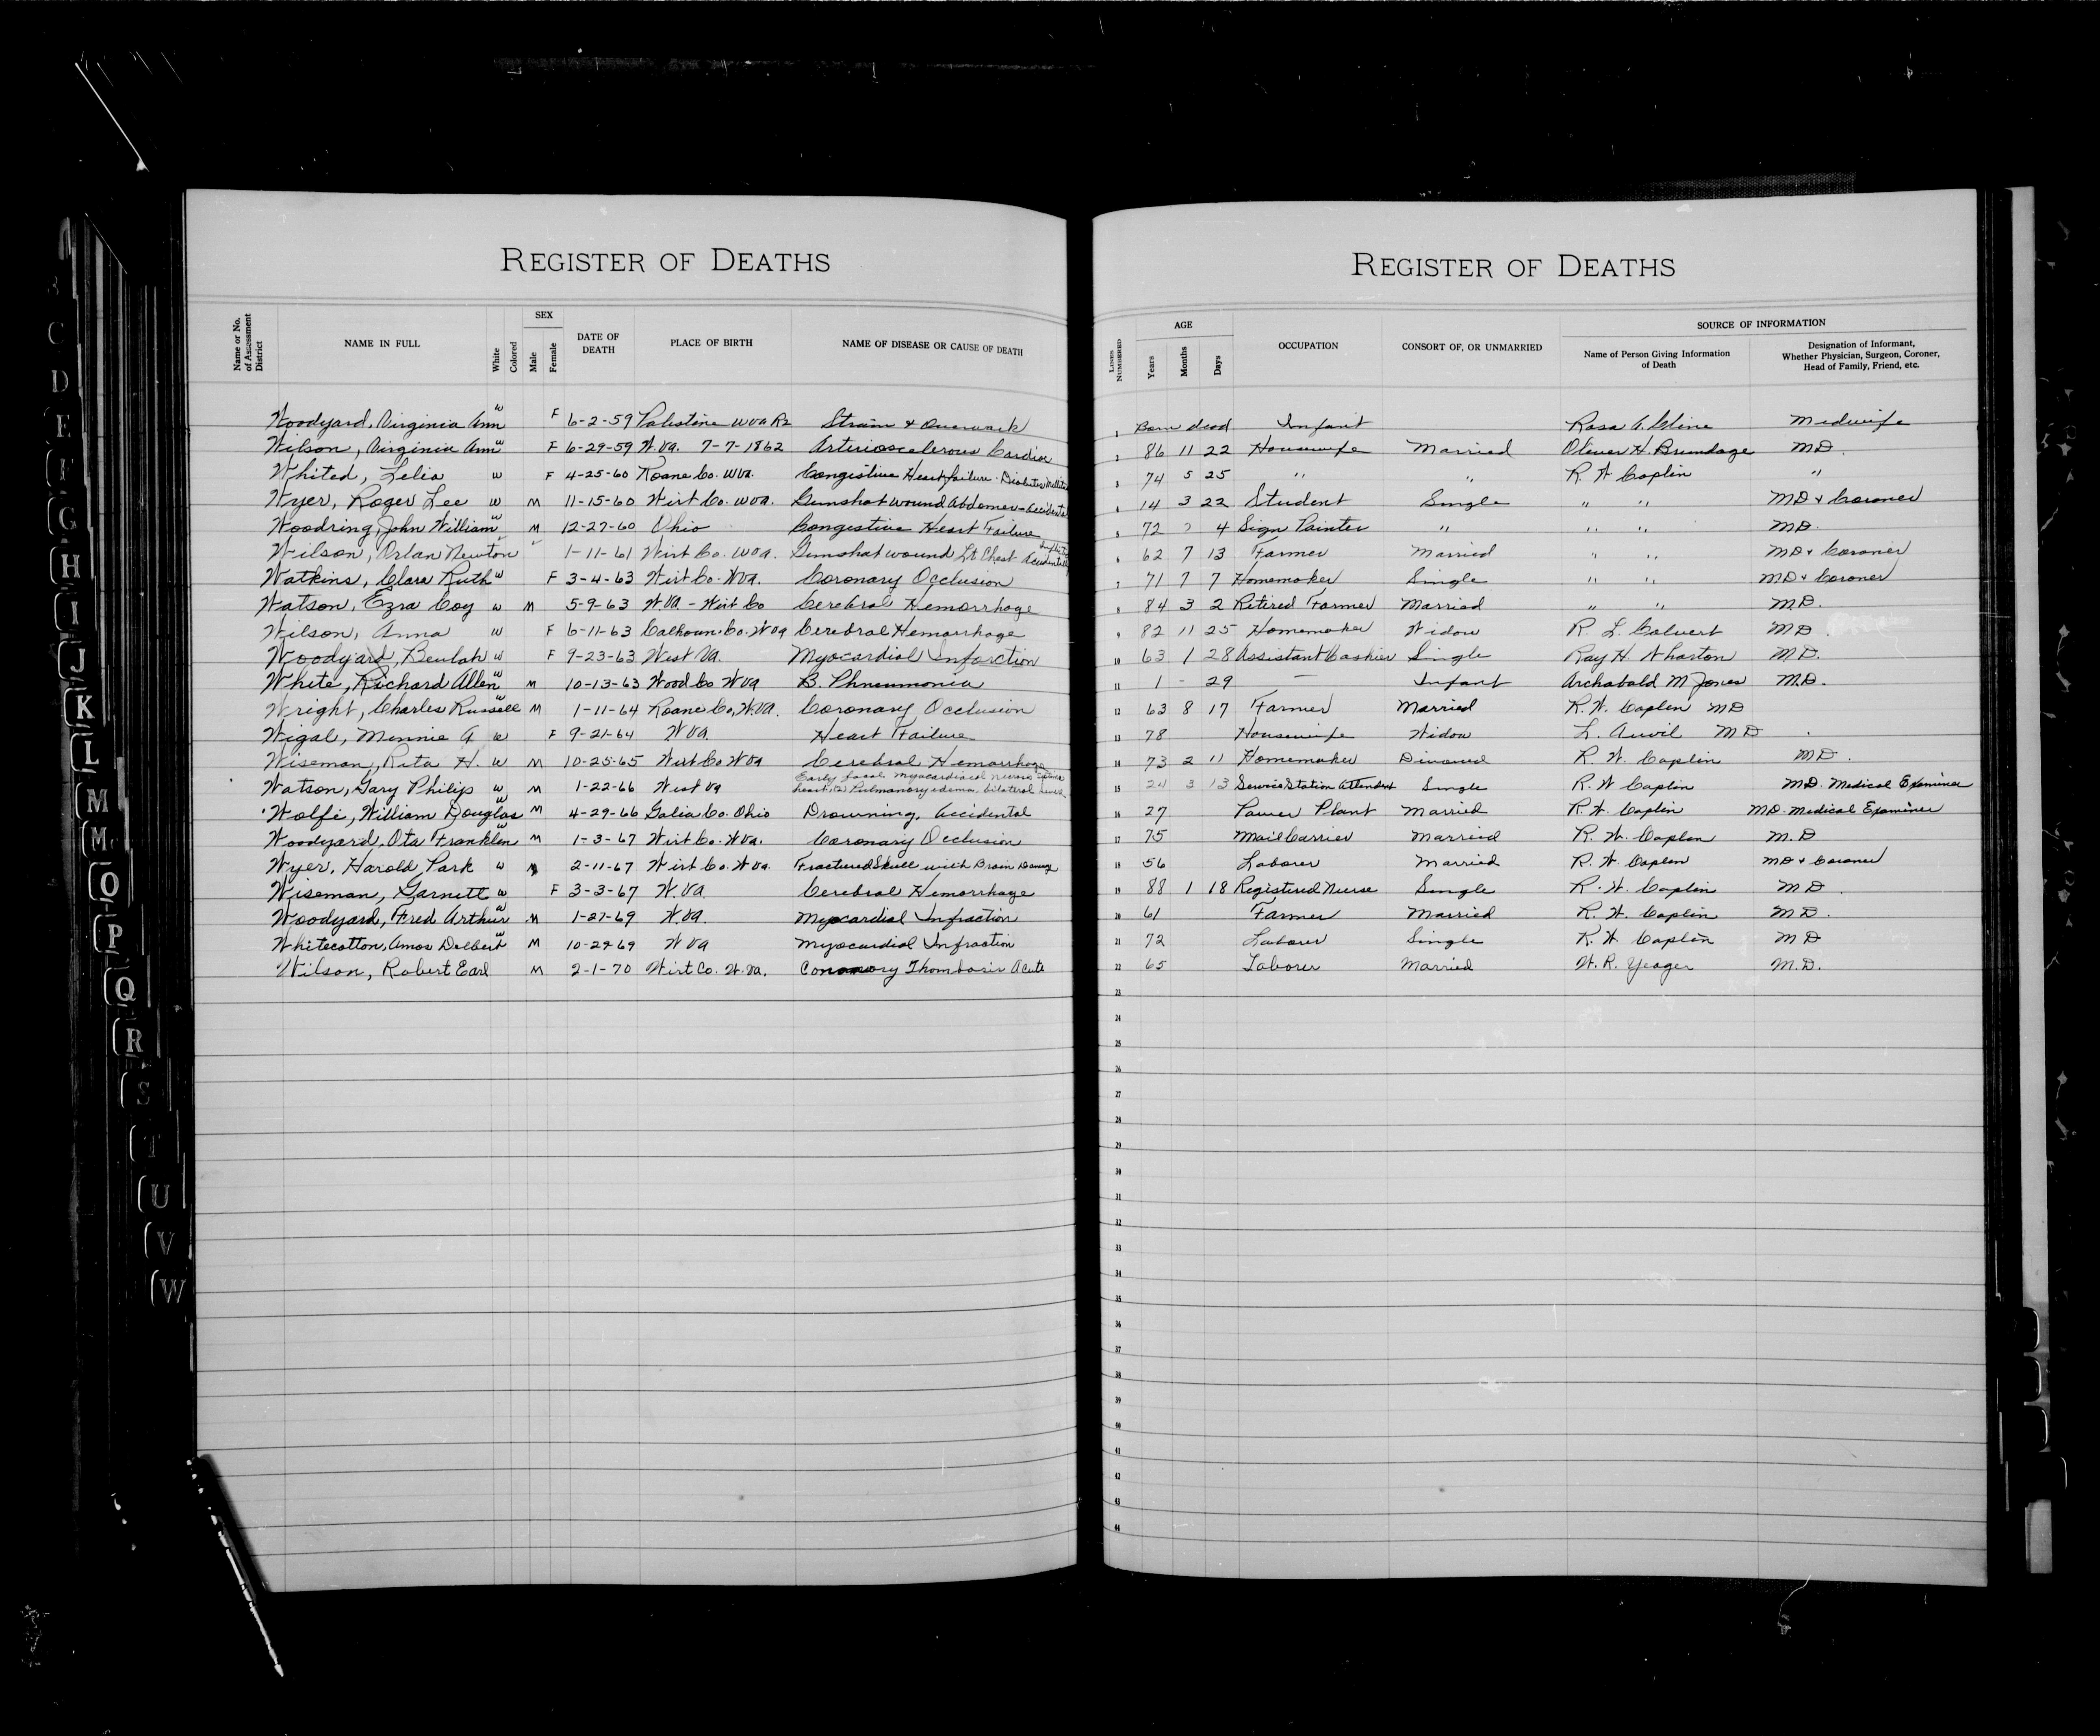 REGISTER OF DEATHS
Name or No. of Assessment District
NAME IN FULL
White
Colored
SEX
Male
Female
DATE OF DEATH
PLACE OF BIRTH
NAME OF DISEASE OR CAUSE OF DEATH
Woodyard, Virginia Ann w F 6-2-59 Palestine W Va R2 Strain & Overwork
Wilson, Virginia Ann w F 6-29-59 W. Va. 7-7-1862 Arteriosclerous Cardia
Whited, Lelia w F 4-25-60 Roane Co. W Va. Congestive Heart failure - Diabetes
Wyer, Roger Lee w M 11-15-60 Wirt Co. W Va. Gunshot wound Abdomen - Accidental
Woodring, John William w M 12-27-60 Ohio Congestive Heart Failure
Wilson, Orlan Newton 1-11-61 Wirt Co. W Va. Gunshot wound Lt Chest Accidentally
Watkins, Clara Ruth w F 3-4-63 Wirt Co. W Va. Coronary Occlusion
Watson, Ezra Coy w M 5-9-63 W. Va - Wirt Co Cerebral Hemorrhage
Wilson, Anna w F 6-11-63 Calhoun Co. W Va Cerebral Hemorrhage
Woodyard, Beulah w F 9-23-63 West Va. Myocardial Infarction
White, Richard Allen w M 10-13-63 Wood Co W Va B. Phneumonia
Wright, Charles Russell w M 1-11-64 Roane Co, W. Va. Coronary Occlusion
Wigal, Minnie A w F 9-21-64 W Va Heart Failure
Wiseman, Rita H. w M 10-25-65 Wirt Co W Va Cerebral Hemorrhage
Watson, Gary Philip w M 1-22-66 West Va Early focal myocardial necrosis
heart, Pulmonary edema, bilateral
Wolfe, William Douglas w M 4-29-66 Galia Co. Ohio Drowning, Accidental
Woodyard, Ota Franklin w M 1-3-67 Wirt Co. W Va. Coronary Occlusion
Wyer, Harold Park w M 2-11-67 Wirt Co. W Va. Fractured Skull with Brain Damage
Wiseman, Garnett w F 3-3-67 W. Va Cerebral Hemorrhage
Woodyard, Fred Arthur w M 1-27-69 W Va. Myocardial Infraction
Whitecotton, Amos Delbert w M 10-29-69 W Va Myocardial Infraction
Wilson, Robert Earl M 2-1-70 Wirt Co. W. Va. Conorory Thombosis Acute
REGISTER OF DEATHS
LINES NUMBERED
AGE
Years
Months
Days
OCCUPATION
CONSORT OF, OR UNMARRIED
SOURCE OF INFORMATION
Name of Person Giving Information of Death
Designation of Informant, Whether Physician, Surgeon, Coroner, Head of Family, Friend, etc.
1 Born dead Infant Rosa A. Cline Midwife
2 86 11 22 Housewife Married Oliver H. Brundage MD.
3 74 5 25 " " R. W. Caplin "
4 14 3 22 Student Single " " MD & Coroner
5 72 4 Sign Painter " " " MD.
6 62 7 13 Farmer Married " " MD & Coroner
7 71 7 7 Homemaker Single " " MD & Coroner
8 84 3 2 Retired Farmer Married " " M.D.
9 82 11 25 Homemaker Widow R. L. Calvert MD
10 63 1 28 Assistant Cashier Single Ray H Wharton M.D.
11 1 - 29 — Infant Archabald M Jones M.D.
12 63 8 17 Farmer Married R. W. Caplin MD
13 78 Housewife Widow L. Auvil MD
14 73 2 11 Homemaker Divorced R. W. Caplin MD.
15 24 3 13 Service Station Attendant Single R. W Caplin MD. Medical Examiner
16 27 Power Plant Married R. W. Caplin MD. Medical Examiner
17 75 Mail Carrier Married R. W. Caplin M.D
18 56 Laborer Married R. W. Caplin MD & Coroner
19 88 1 18 Registered Nurse Single R. W. Caplin MD
20 61 Farmer Married R. W. Caplin MD.
21 72 Laborer Single R. W. Caplin MD
22 65 Laborer Married W. R. Yeager M.D.
23
24
25
26
27
28
29
30
31
32
33
34
35
36
37
38
39
40
41
42
43
44
C
D
E
F
G
H
I
J
K
L
M
M
O
P
Q
R
S
T
U
V
W